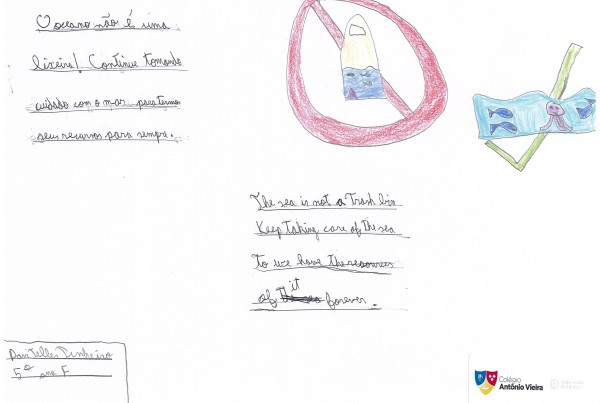 O oceano não é uma
lixeira! Continue tomando
cuidado com o mar para termos
seus recursos para sempre.
The sea is not a Trash bin
Keep taking care of the sea
to we have the resources
of it forever.
5º ano F
Colégio
Antônio Vieira